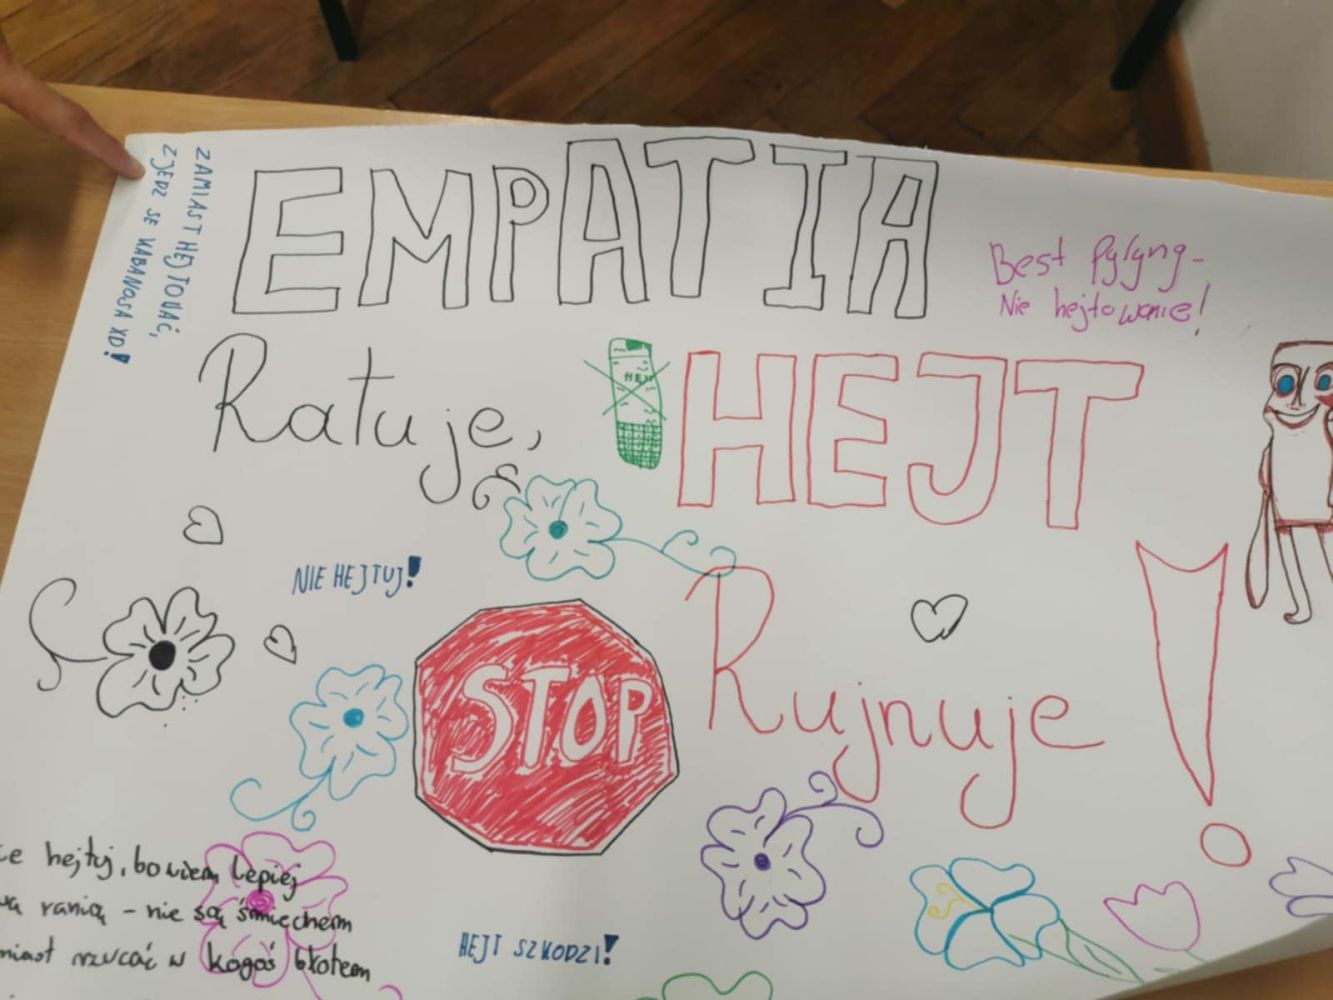 ZAMIAST HEJTOWAĆ,
ZJEDZ SE KABANOSA XD!
EMPATIA
Best Pylyng-
Nie hejtowanie!
Ratuje,
HEJT
HEJT
NIE HEJTUJ!
STOP
Rujnuje!
hejtuj, bowiem lepiej
ranią - nie są śmiechem
rzucać w kogoś błotem
HEJT SZKODZI!